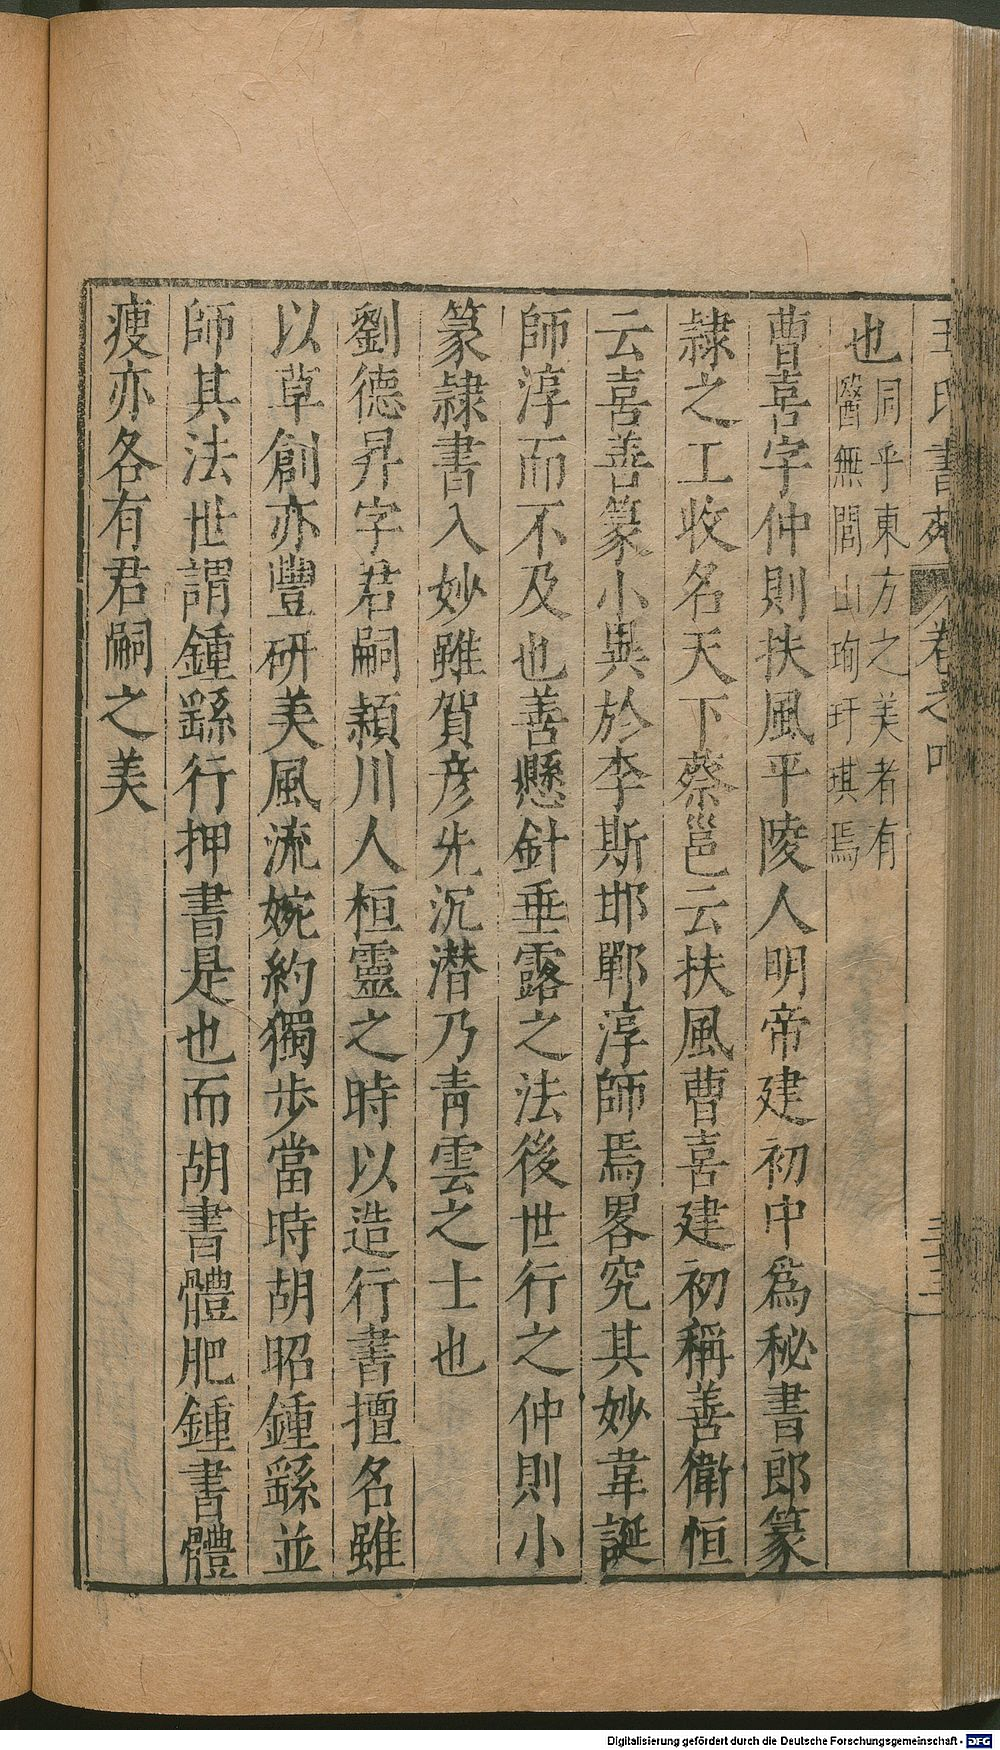 王氏書苑 卷之四 三十三
也同乎東方之美者有
醫無閭山珣玗琪焉
曹喜字仲則扶風平陵人明帝建初中為秘書郎篆
隷之工收名天下蔡邕云扶風曹喜建初稱善衛恒
云喜善篆小異於李斯邯鄲淳師焉畧究其妙韋誕
師淳而不及也善懸針垂露之法後世行之仲則小
篆隷書入妙雖賀彥先沉潜乃青雲之士也
劉德昇字君嗣頴川人桓靈之時以造行書擅名雖
以草創亦豐研美風流婉約獨步當時胡昭鍾繇並
師其法世謂鍾繇行押書是也而胡書體肥鍾書體
瘦亦各有君嗣之美
Digitalisierung gefördert durch die Deutsche Forschungsgemeinschaft - DFG